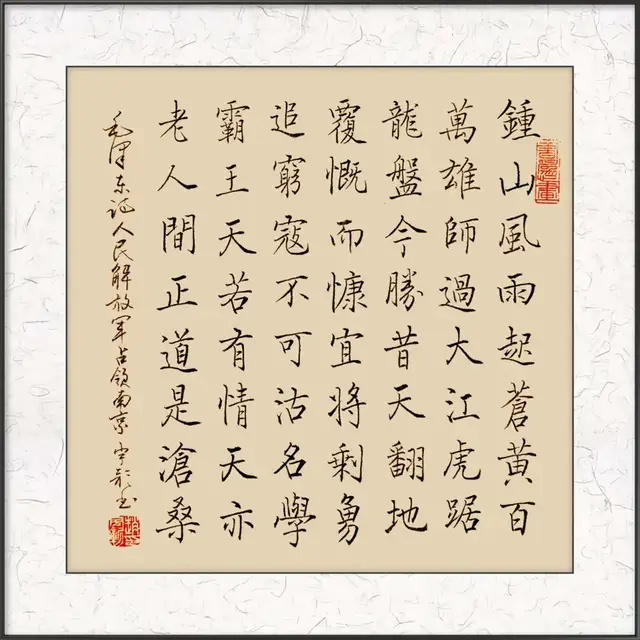 鍾山風雨起蒼黃百
萬雄師過大江虎踞
龍盤今勝昔天翻地
覆慨而慷宜將剩勇
追窮寇不可沽名學
霸王天若有情天亦
老人間正道是滄桑
毛泽东人民解放军占领南京